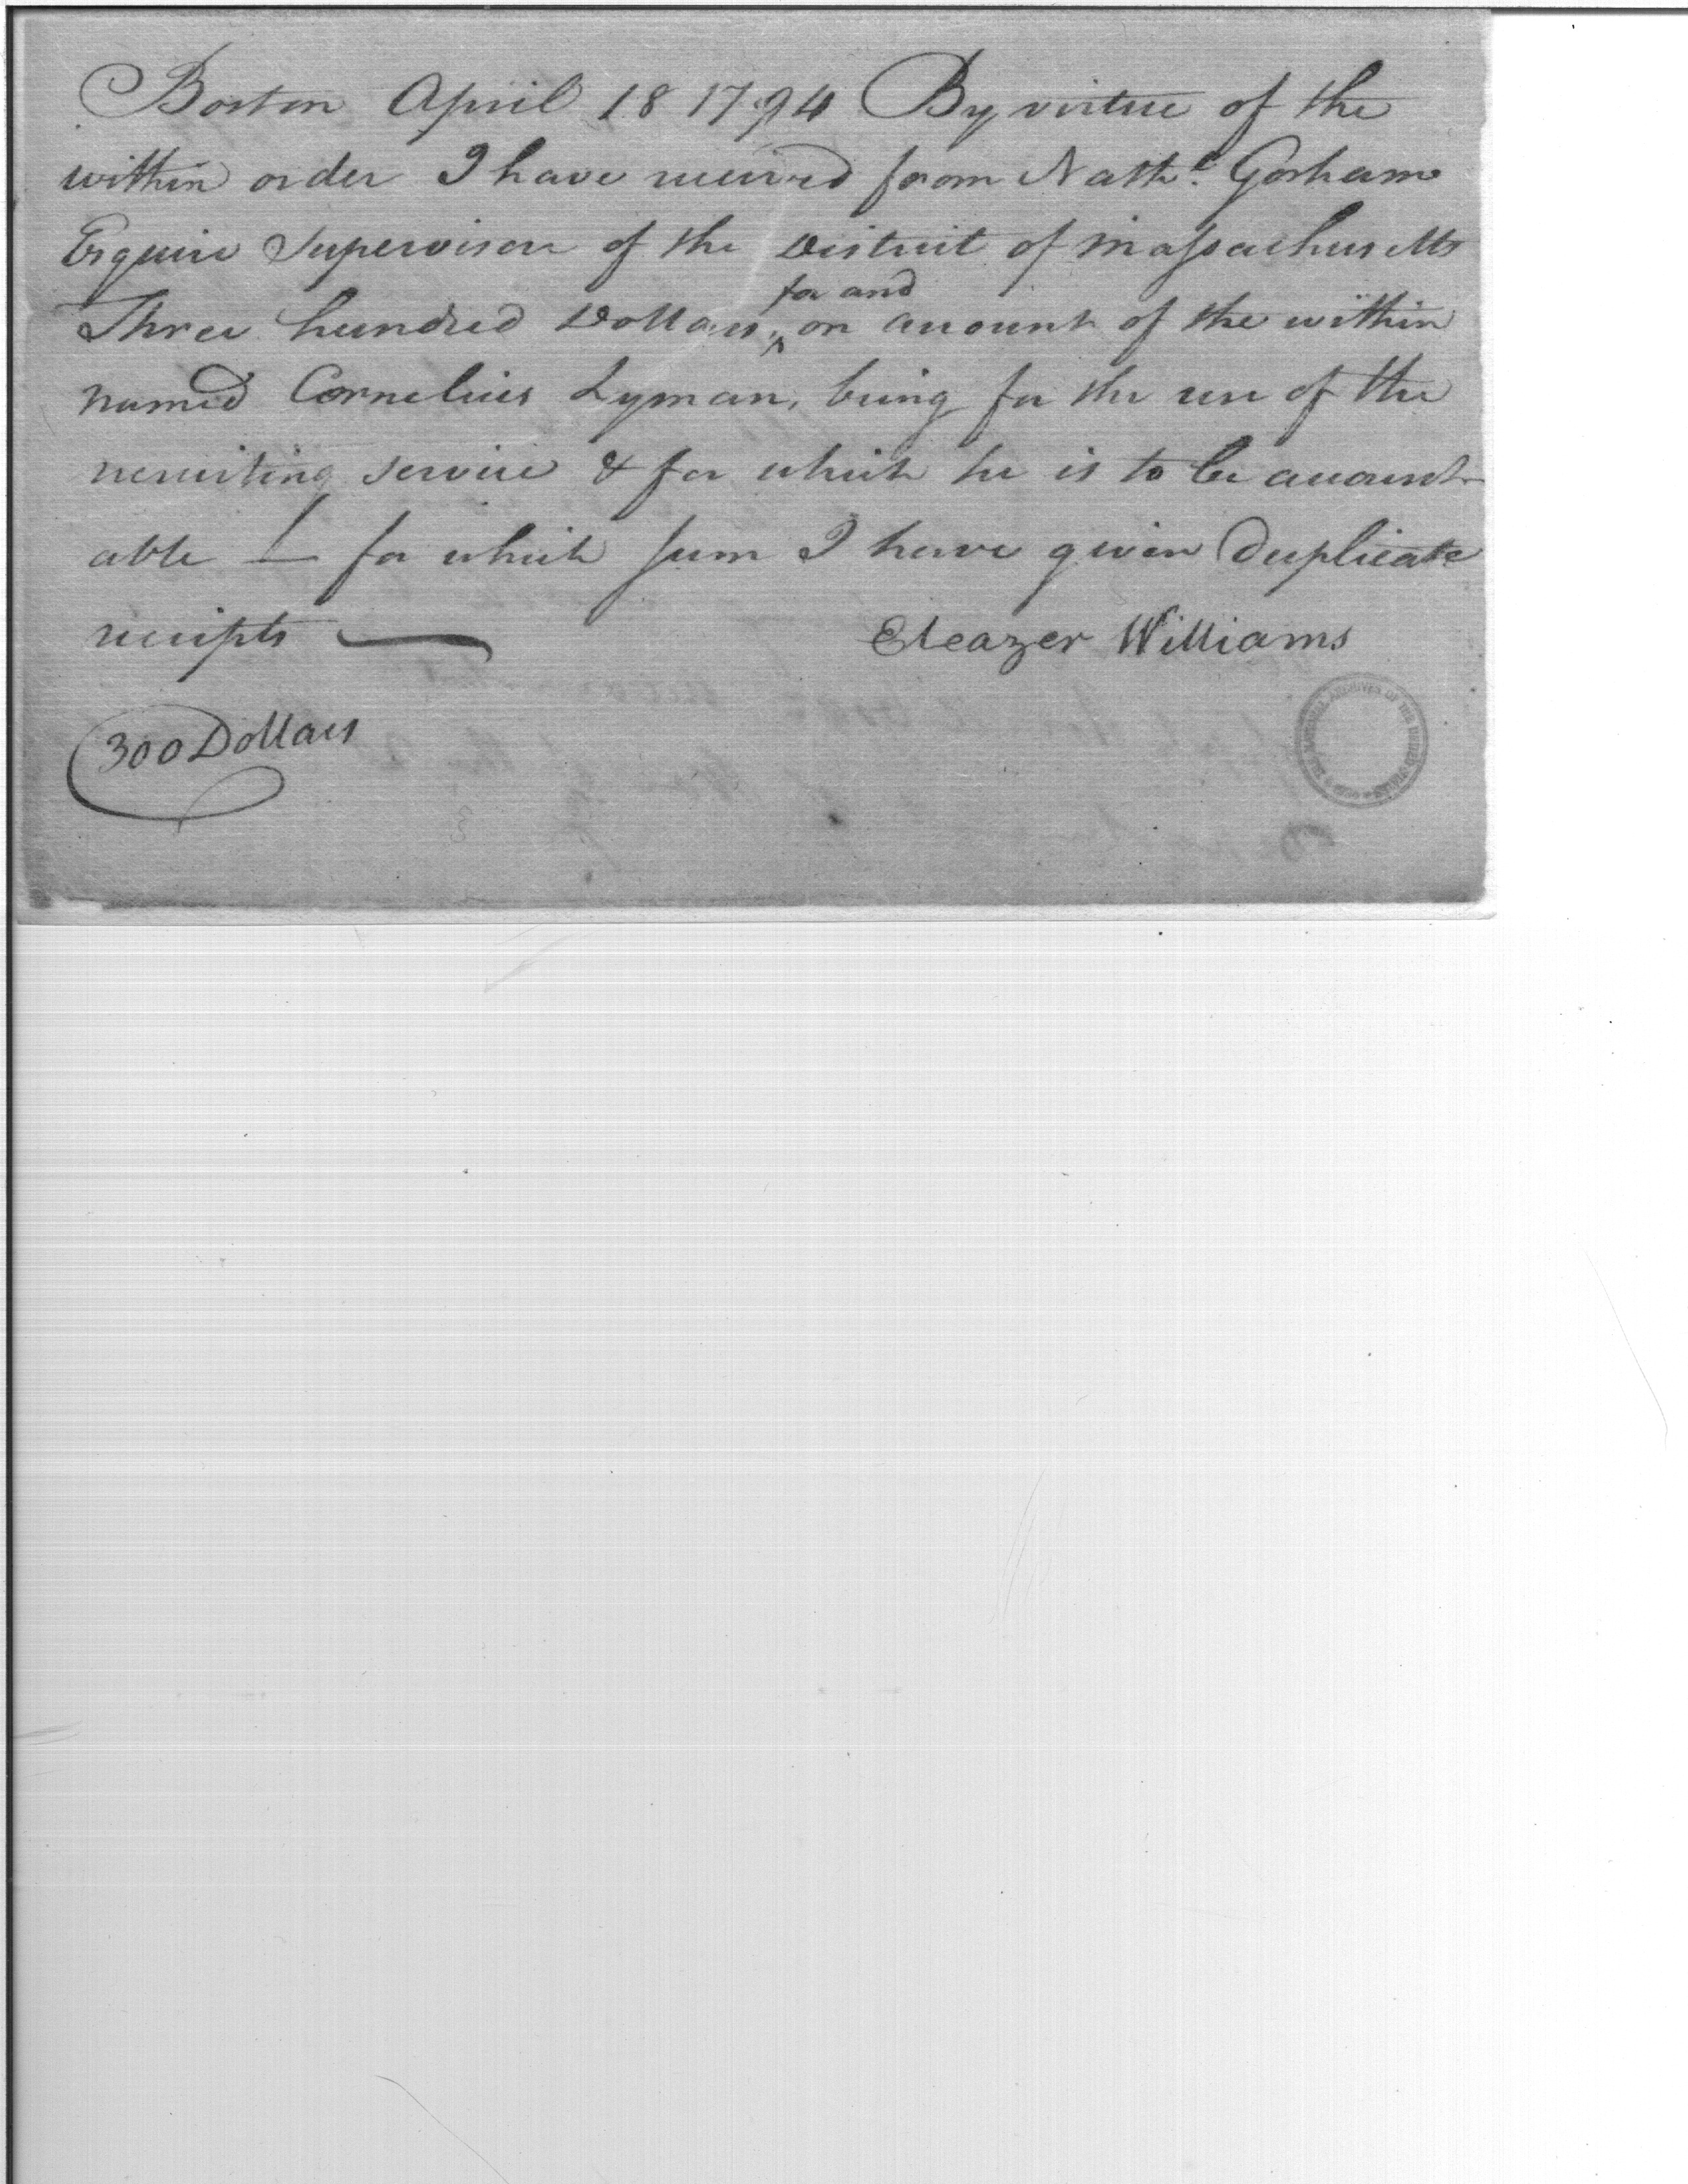 Boston April 18 1794 By virtue of the
within order I have received from Nath.l Gorham
Esquire Supervisor of the District of Massachusetts
for and
Three hundred Dollars ^ on account of the within
named Cornelius Lyman, being for the use of the
recruiting service & for which he is to be account-
able — for which sum I have given Duplicate
receipts —
Eleazer Williams
300 Dollars
ARCHIVES OF THE UNITED STATES